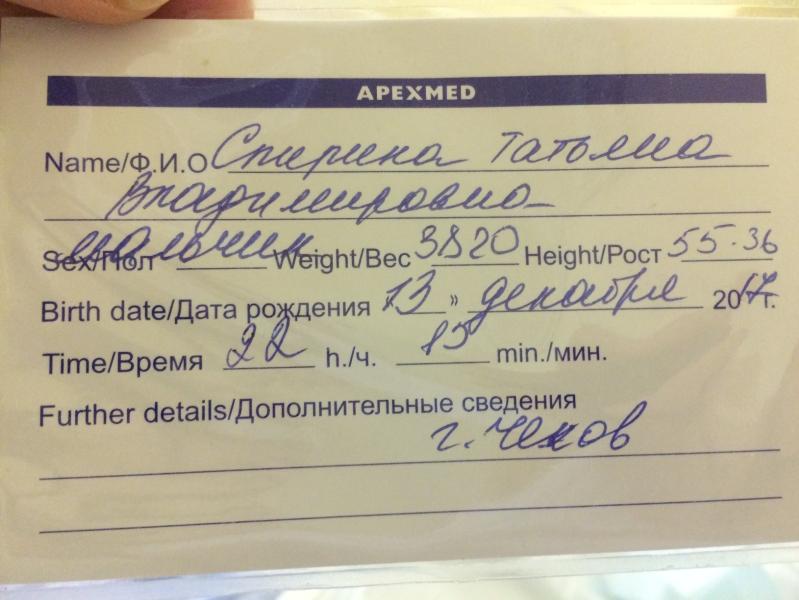 APEXMED
Name/Ф.И.О Спирина Татьяна
Владимировна
Sex/Пол мальчик Weight/Вес 3820 Height/Рост 55-36
Birth date/Дата рождения 13 » декабря 2017г.
Time/Время 22 h./ч. 15 min./мин.
Further details/Дополнительные сведения
г. Чехов